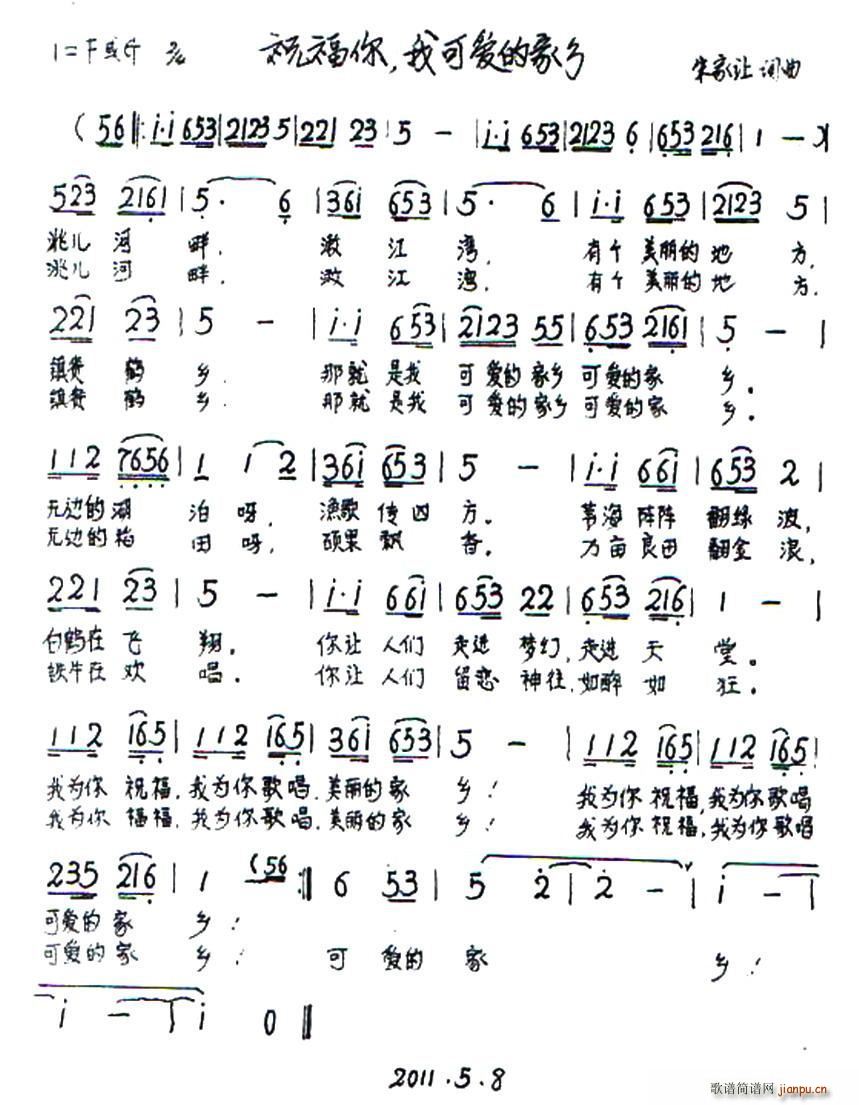 1=F或G 2/4 祝福你,我可爱的家乡 朱家让 词曲
( 56 |: i·i 653 | 2123 5 | 221 23 | 5 — | i·i 653 | 2123 6 | 653 216 | 1 — )|
523 2161 | 5· 6 | 361 653 | 5· 6 | i·i 653 | 2123 5 |
洮儿河畔, 江湾, 有个美丽的地方,
洮儿河畔, 江湾, 有个美丽的地方,
221 23 | 5 — | i·i 653 | 2123 55 | 653 2161 | 5 — |
镇赉鹤乡. 那就是我可爱的家乡可爱的家乡。
镇赉鹤乡. 那就是我可爱的家乡可爱的家乡。
112 7656 | 1 1 2 | 36i 653 | 5 — | i·i 66i | 653 2 |
无边的湖泊呀, 渔歌传四方。 苇海阵阵翻绿波,
无边的稻田呀, 硕果飘香。 万亩良田翻金浪,
221 23 | 5 — | i·i 66i | 653 22 | 653 216 | 1 — |
白鹤在飞翔。 你让人们走进梦幻,走进天堂。
铁牛在欢唱。 你让人们留恋神往,如醉如狂。
112 165 | 112 165 | 36i 653 | 5 — | 112 165 | 112 165 |
我为你祝福,我为你歌唱,美丽的家乡! 我为你祝福,我为你歌唱
我为你福福,我为你歌唱,美丽的家乡! 我为你祝福,我为你歌唱
235 216 | 1 (56 :|| 6 53 | 5 2 | 2 — | i — |
可爱的家乡!
可爱的家乡! 可爱的家乡!
i — | i 0 ||
2011.5.8
歌谱简谱网
jianpu.cn